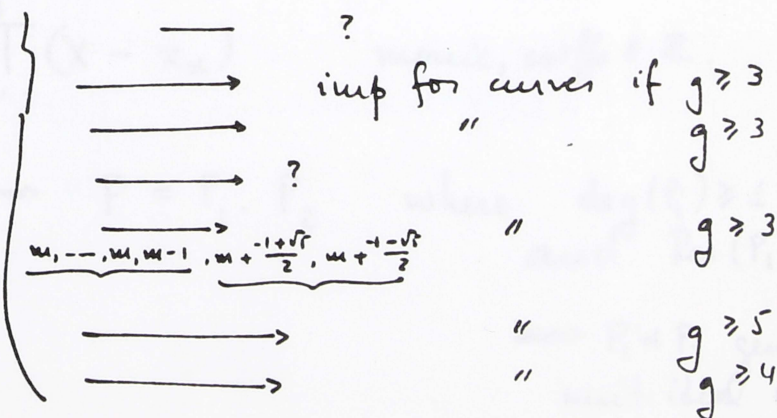 ?
imp for curves if g ≥ 3
" g ≥ 3
?
" g ≥ 3
m, ---, m, m-1, m + \frac{-1+\sqrt{5}}{2}, m + \frac{-1-\sqrt{5}}{2}
" g ≥ 5
" g ≥ 4